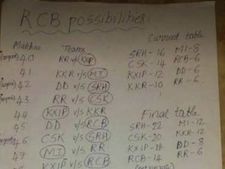 RCB possibilities
Matches Teams
40 RR v KXIP
41 KKR v MI
42 DD v SRH
43 RR v CSK
44 KXIP v KKR
45 DD v RCB
46 CSK v SRH
47 MI v RR
KXIP v RCB
Current table
SRH-16 MI-8
CSK-14 RCB-6
KXIP-12 DD-6
KKR-10 RR-6
Final table
SRH-22 MI-12
CSK-20 KKR-12
KXIP-18 DD-8
RCB-14 RR-6